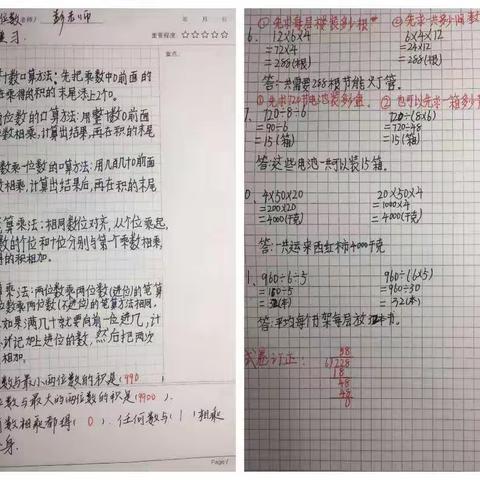 位数 彭老师 年 月 日
复习. 重要程度: ☆☆☆☆☆
重点:
十数口算方法: 先把乘数中0前面的
在乘得的积的末尾添上2个0.
两位数的口算方法: 用整十数0前面
位数相乘, 计算出结果, 再在积的末尾
数乘一位数的口算方法: 用几百几十0前面
数相乘, 计算出结果后, 再在积的末尾
算乘法: 相同数位对齐, 从个位乘起,
数的个位和十位分别与第一个乘数相乘,
得的积相加.
乘法: 两位数乘两位数(进位)的笔算
位数乘两位数(不进位)的笔算方法相同.
如果满几十就要向前一位进几, 计
计记加上进位的数, 然后把两次
相加.
数与最小两位数的积是(990)
位数与最大的两位数的积是(9900).
何数相乘都得(0). 任何数与(1)相乘
身.
Page/
①先求每层楼装多少根 ②先求一共多少间教
6. 12×6×4 6×4×12
=72×4 =24×12
=288(根) =288(根)
答: 一共需要288根节能灯管.
①先求720节电池装多少盒. ②也可以先求一箱多少节
7. 720÷8÷6 720÷(8×6)
=90÷6 =720÷48
=15(箱) =15(箱)
答: 这些电池一共可以装15箱.
0. 4×50×20 20×50×4
=200×20 =1000×4
=4000(千克) =4000(千克)
答: 一共运来西红柿4000千克
1. 960÷6÷5 960÷(6×5)
=160÷5 =960÷30
=32(本) =32(本)
答: 平均每个书架每层放32本书.
试卷订正: